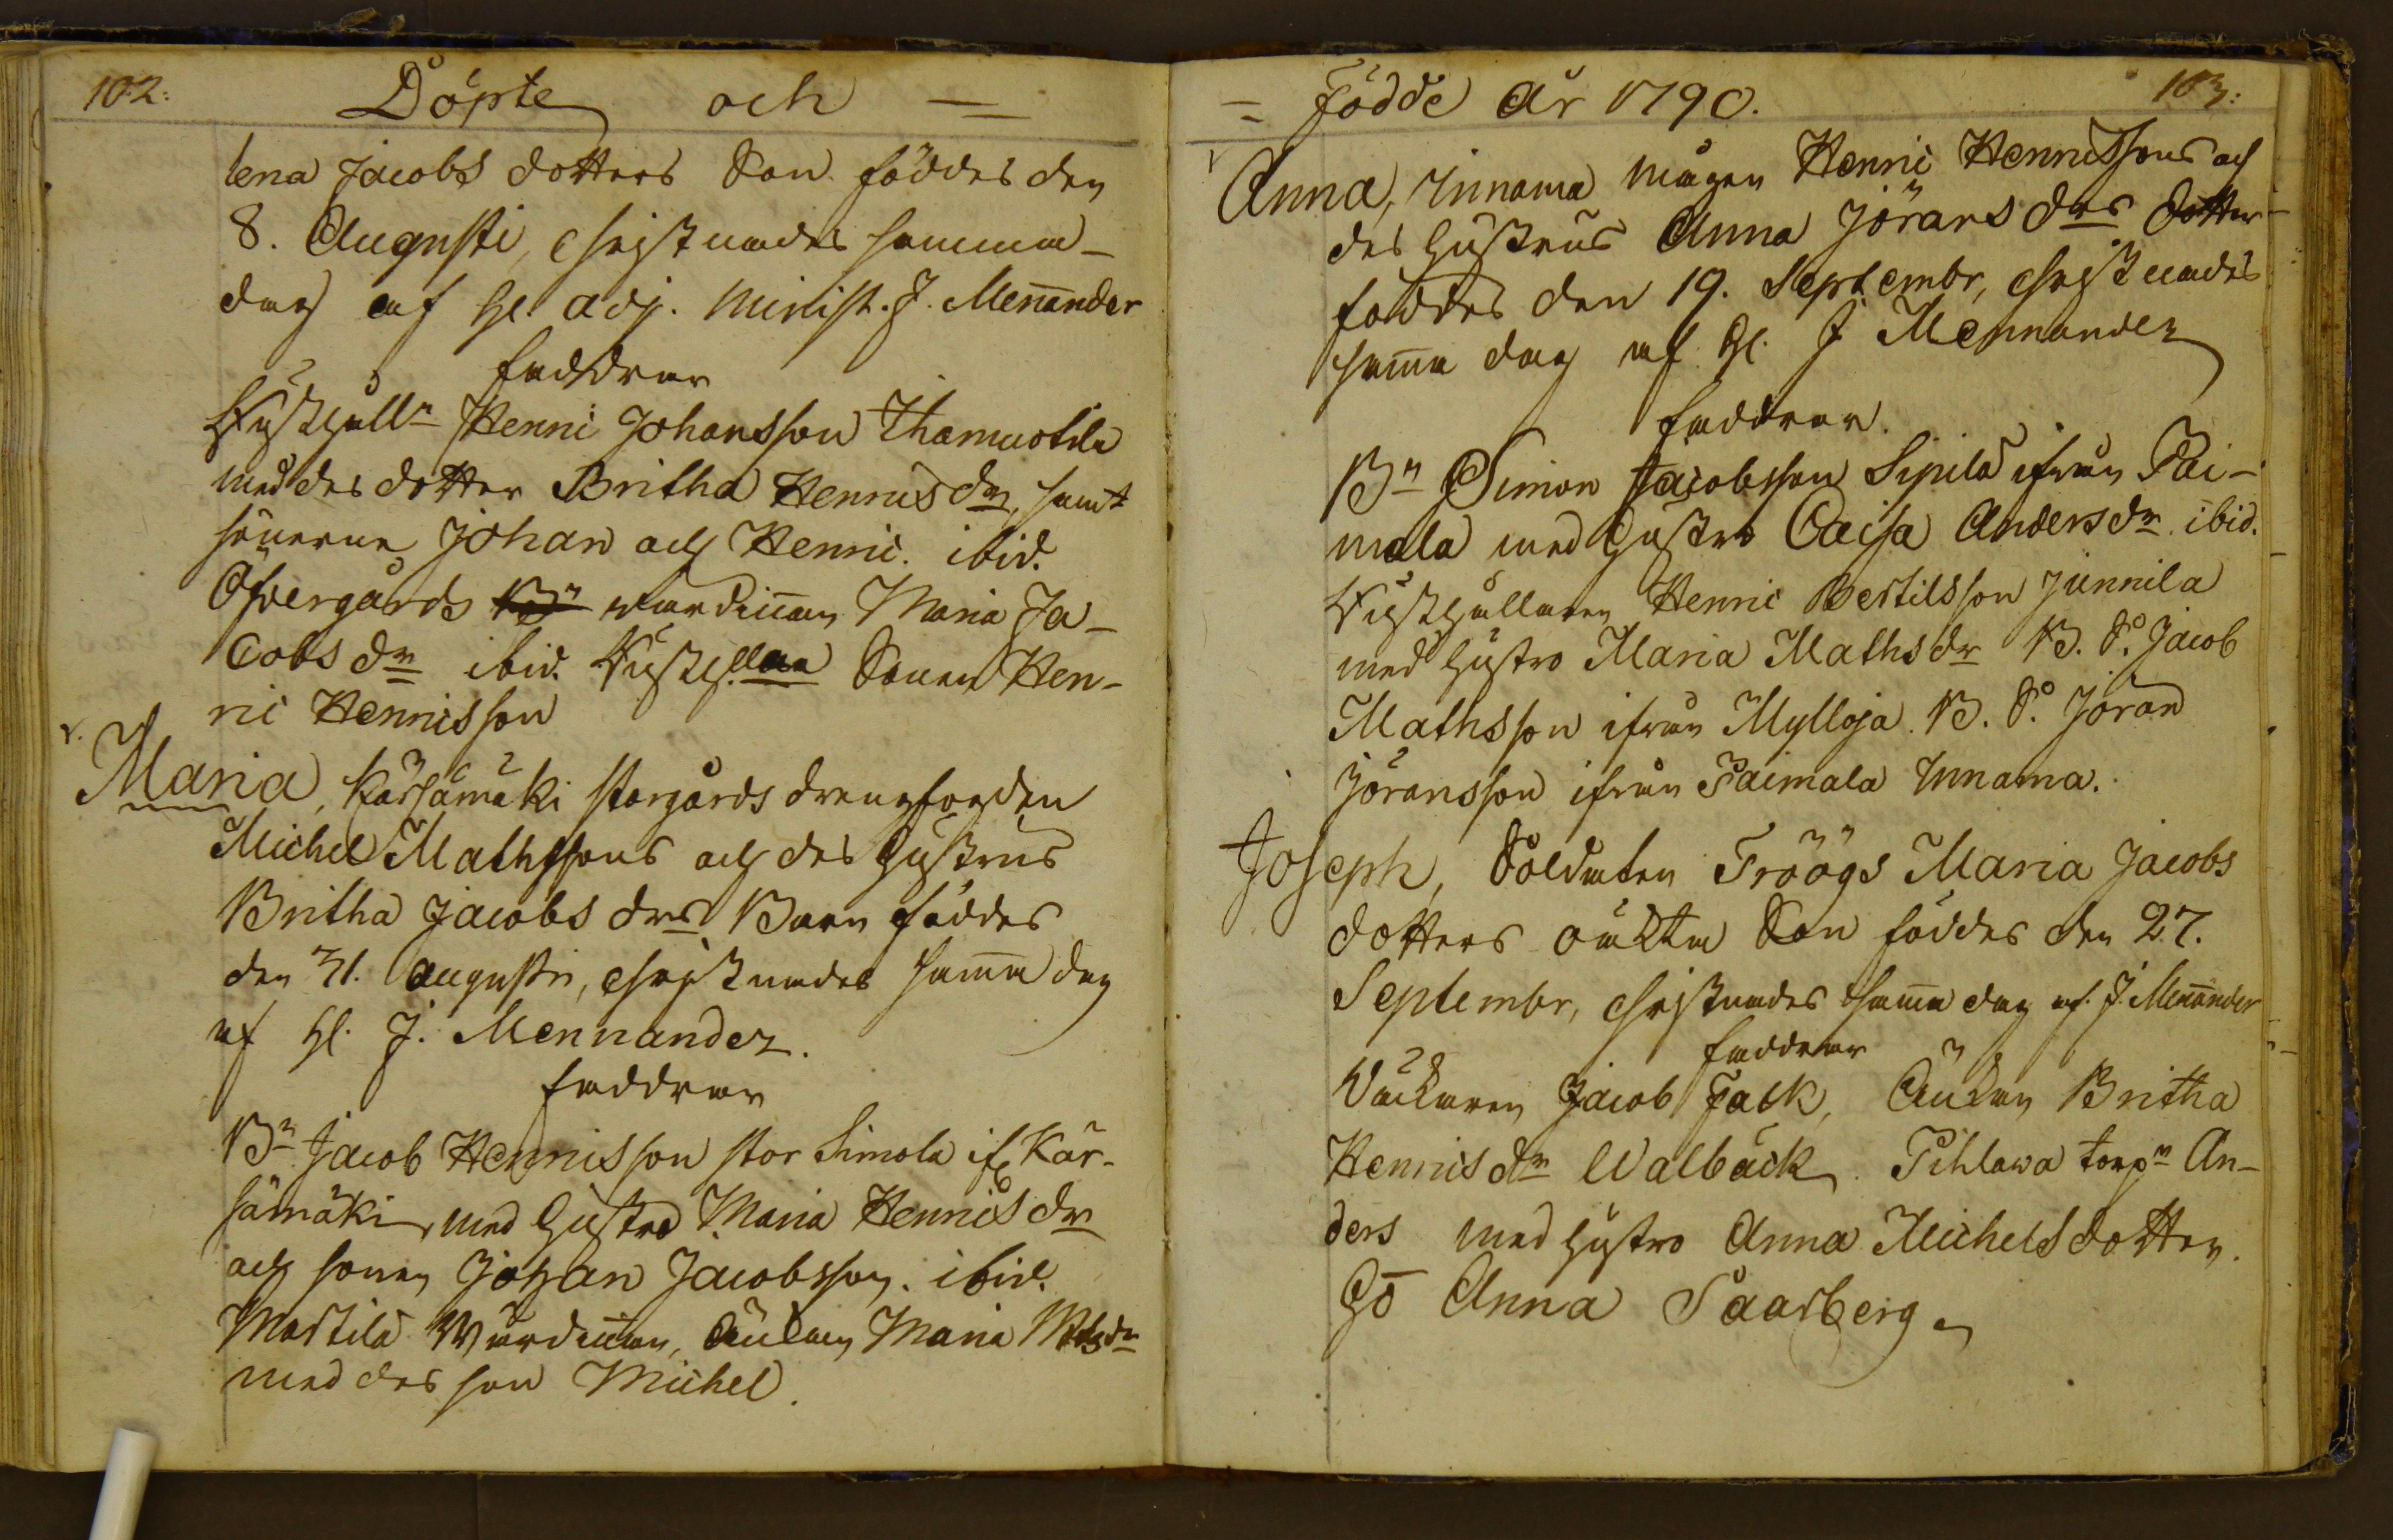 102:
Döpte och —
lena Jacobs dotters Son föddes den
8. Augusti, christnades samma-
dag af Hl. adj. Minist. J. Men̄ander
faddrar
Rusthålln Henric Johansson Thamuotila
med des dotter Britha Henricsdr, samt
sönerne Johan och Henric. ibid.
Öfvergårds Bn värdin̄an Maria Ja-
cobs dr ibid. Rusth. Sonen Hen-
ric Henricsson
v.
Maria, Kärsämäki storgårds drengfogden
Michel Mathssons och des hustrus
Britha Jacobs drs Barn föddes
den 31. Augusti, christnades sam̄a dag
af Hl. J. Mennander.
faddrar
Bn Jacob Henricsson stor Simola ifr Kär-
sämäki, med hustro Maria Henricsdr
och sonen Johan Jacobsson. ibid.
Martila Wärdin̄an, Änkan Maria Matsdr
med des son Michel.
= Födde År 1790.
103:
v
Anna, Innama mågen Henric Henricssons och
des hustrus Anna Jörans drs dotter
föddes den 19. Septembr, christnades
sam̄a dag af Hl. J Mennander
faddrar.
Bn Simon Jacobsson Sipilä ifrån Pai-
mala med hustro Caisa Andersdr ibid.
Rusthållaren Henric Bertilsson Junnila
med hustro Maria Mathsdr B. So. Jacob
Mathsson ifrån Mylloja. B. So. Jöran
Jöransson ifrån Paimala Innama.
Joseph, Soldaten Tröögs Maria Jacobs
dotters oäkta Son föddes den 27.
Septembr, christnades sam̄a dag af. J. Men̄ander
faddrar
Väckaren Jacob Falk, Änkan Britha
Henricsdr Walbäck. Pihlawa torpn An-
ders med hustro Anna Michelsdotter.
Ho Anna Saarberg.